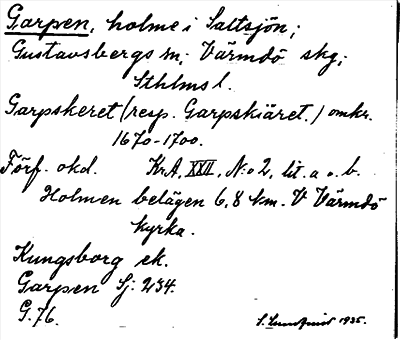 Garpen, holme i Saltsjön;
Gustavsbergs sn; Värmdö skg;
Sthlms l.
Garpskeret (resp. Garpskiäret.) omkr.
1670-1700.
Förf. okd. KrA, XXII, No 2, lit. a o. b.
Holmen belägen 6,8 km. V Värmdö
kyrka.
Kungsborg ek.
Garpen Sj: 234.
G. 76.
S. Lundqvist 1935.